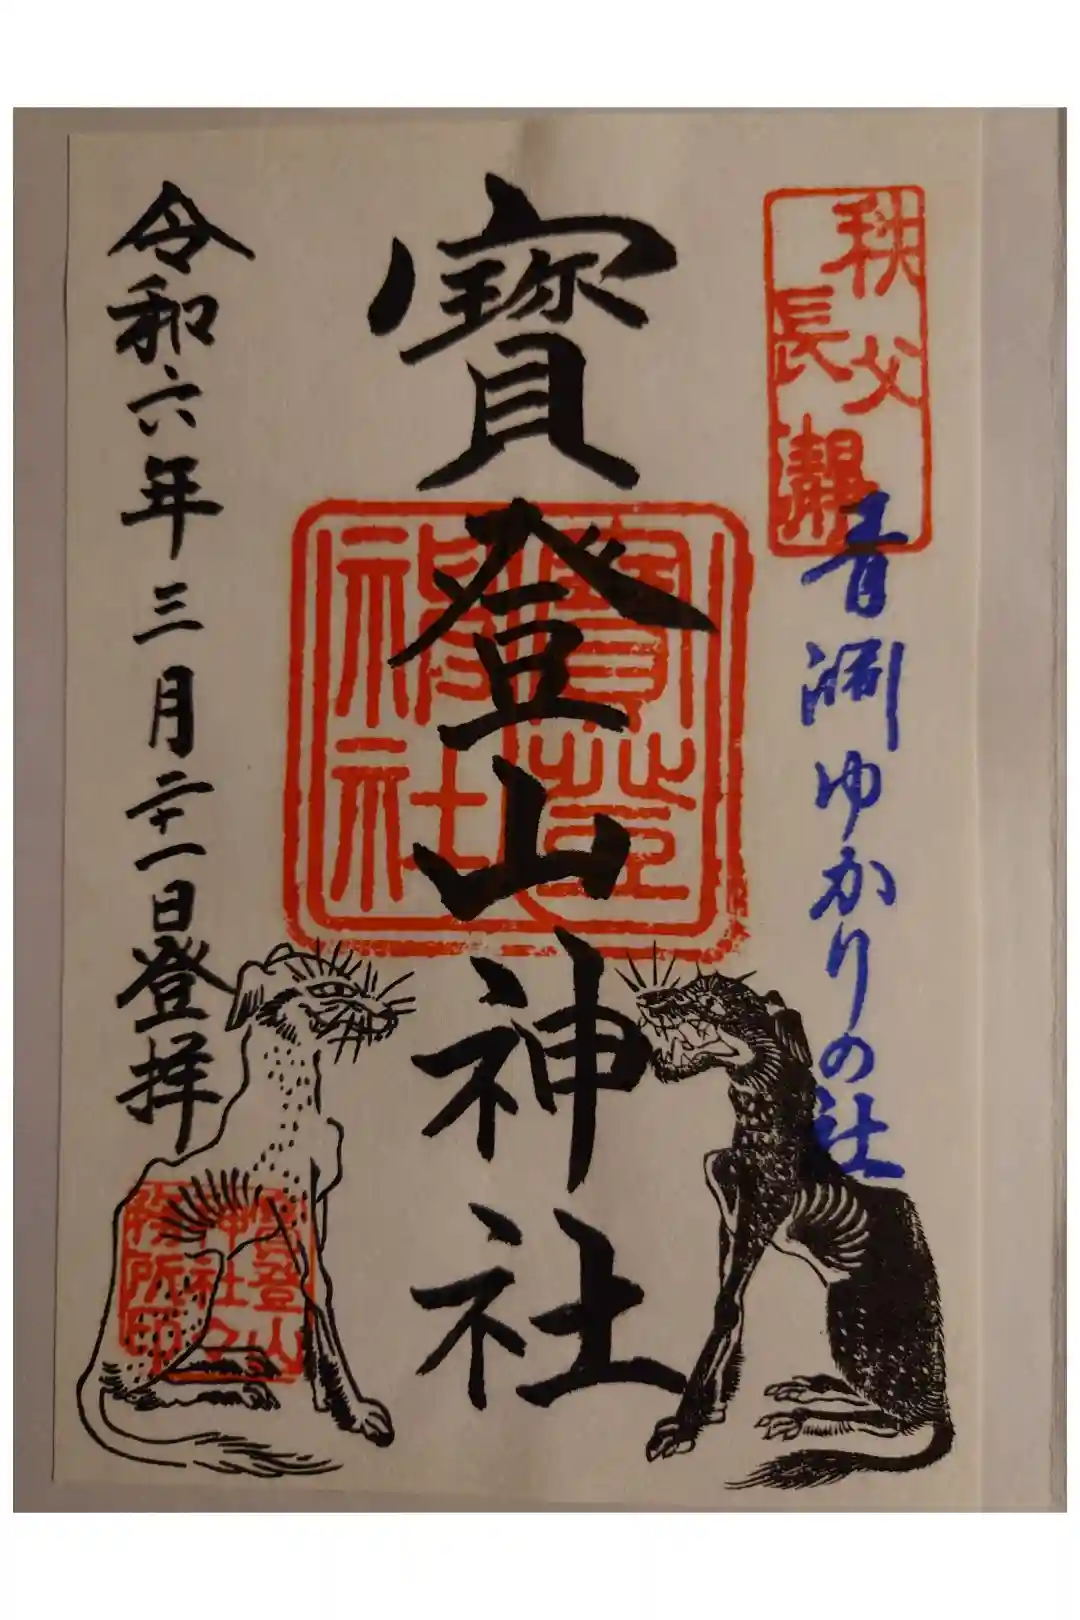 秩父
長瀞
青淵ゆかりの社
寶登山神社
寶登
神社
令和六年三月二十一日登拝
寶登山
神社之
務所印